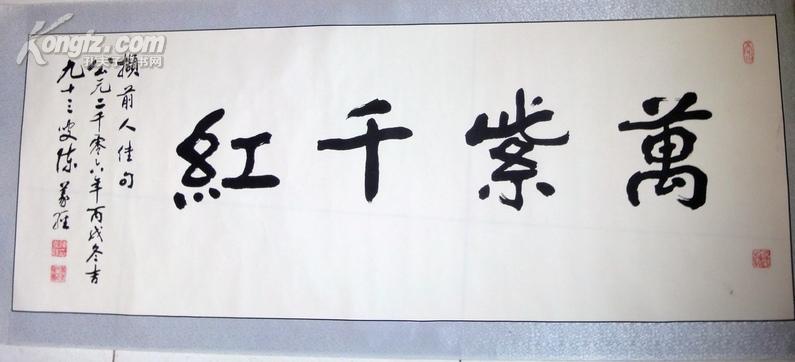 萬紫千紅
擷前人佳句
公元二千零六年丙戌冬吉
九十三叟陈羲经
Kongfz.com
孔夫子旧书网